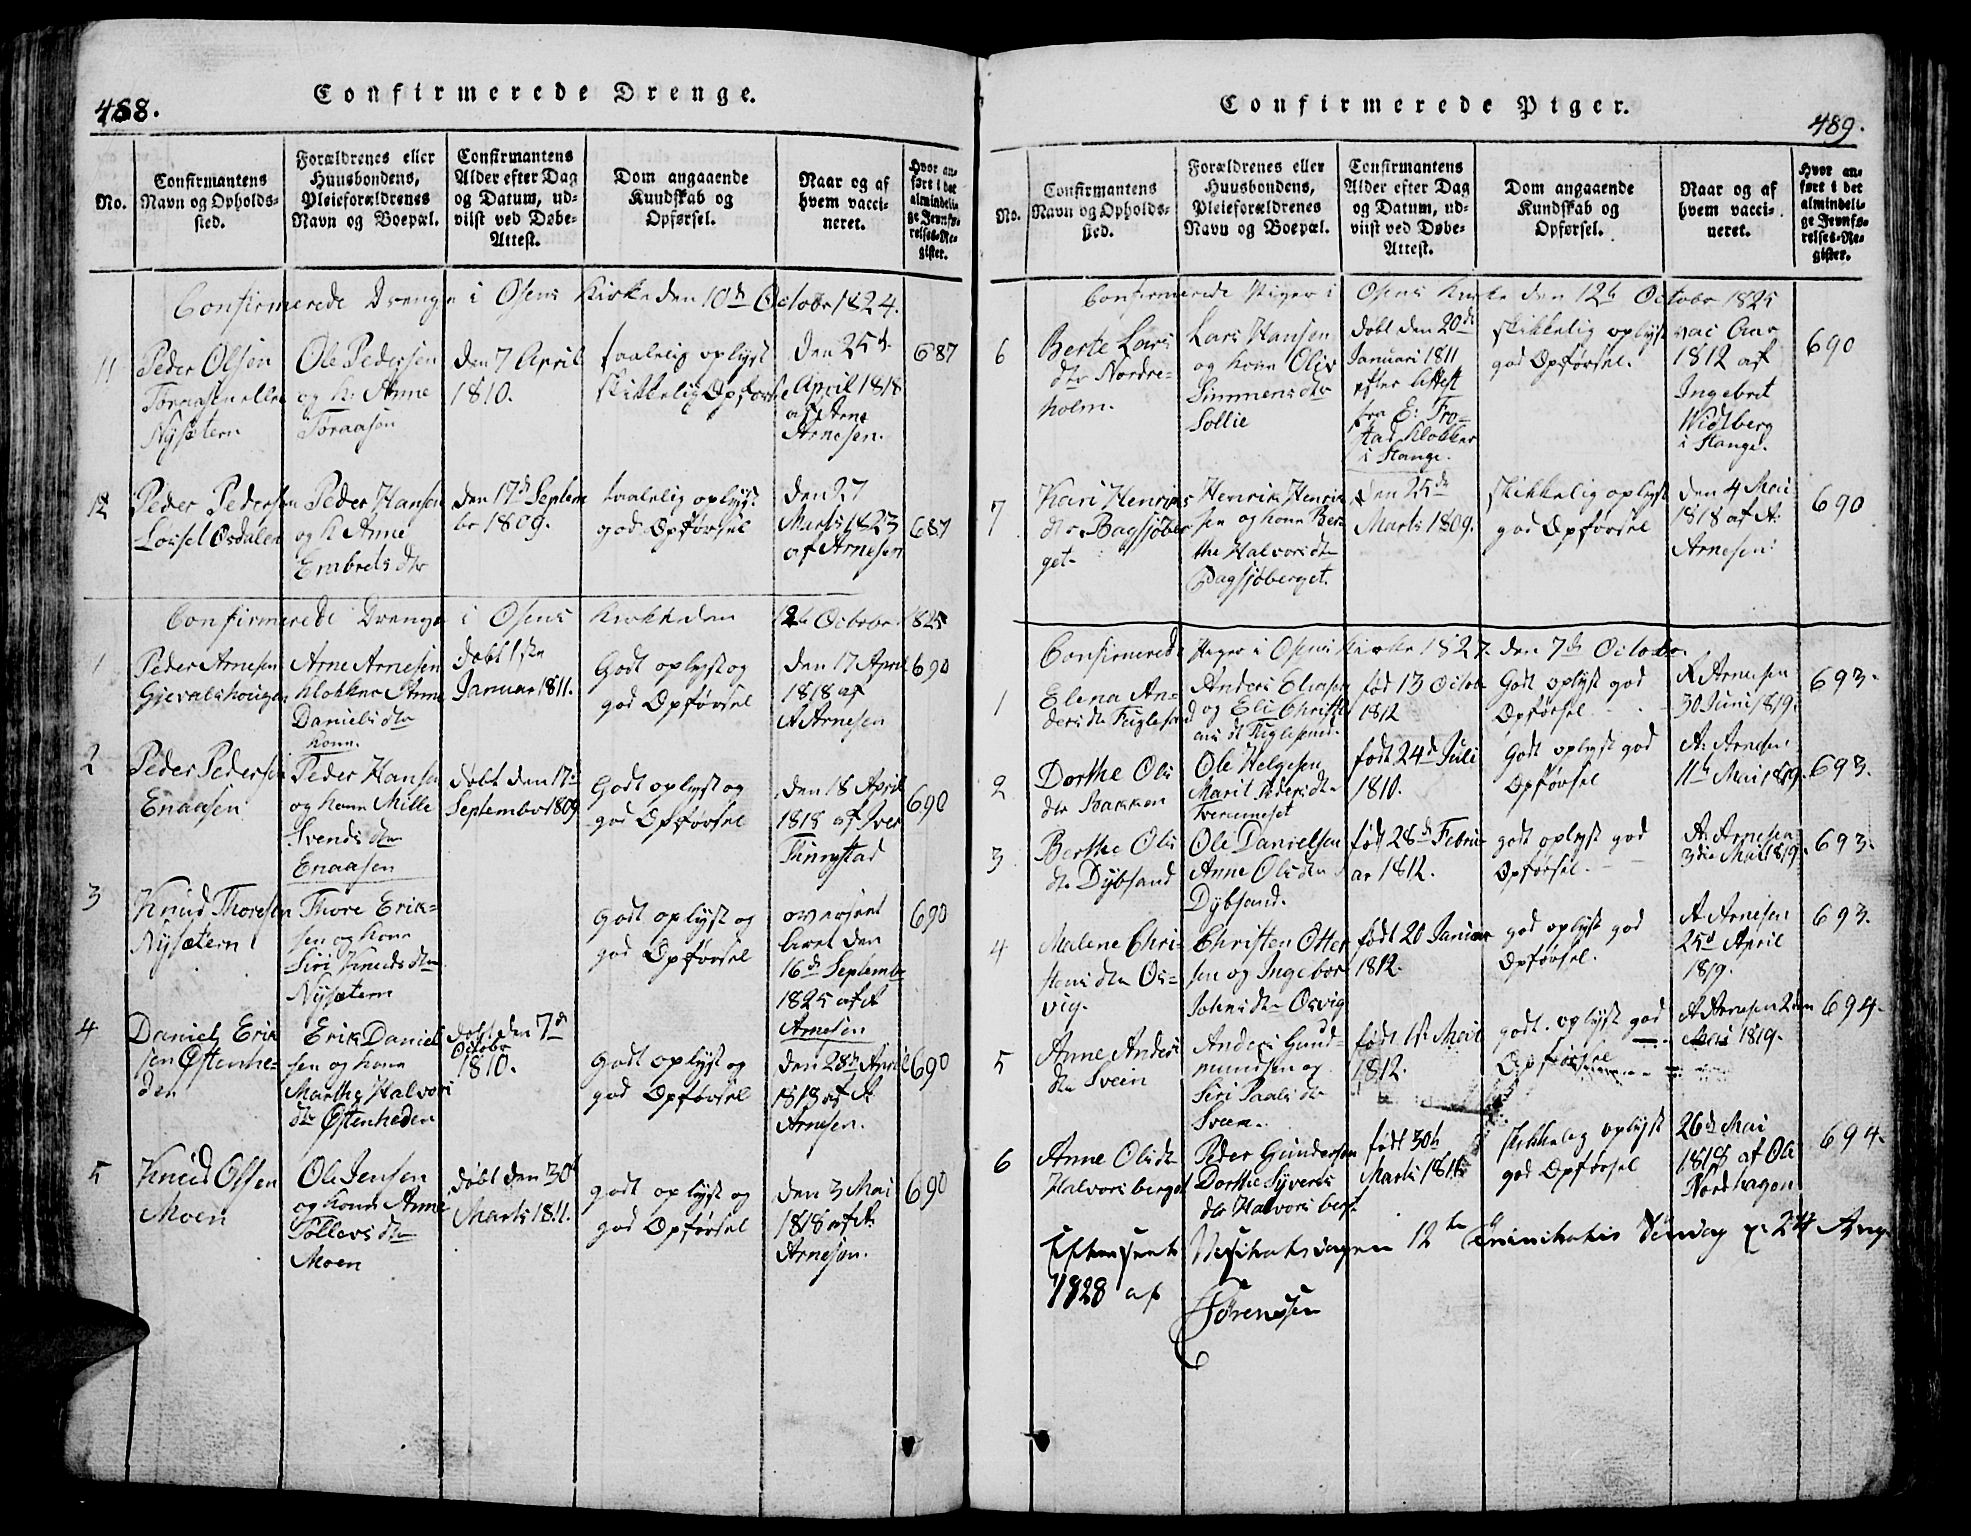 488.
Confirmerede Drenge.
No.
Confirmantens
Navn og Opholds-
sted.
Forældrenes eller
Huusbondens,
Pleieforældrenes
Navn og Boepæl.
Confirmantens
Alder efter Dag
og Datum, ud-
viist ved Døbe-
Attest.
Dom angaaende
Kundskab og
Opførsel.
Naar og af
hvem vacci-
neret.
Hvor an-
ført i det
almindeli-
ge Jevnfø-
relses-Re-
gister.
Confirmerede Drenge i Osens Kirke den 10de Octobr 1824.
11
Peder Olsen
Toraasen eller
Nysætern
Ole Pedersen
og k: Anne
Toraasen
den 7 April
1810.
taalelig oplyst
skikkelig Opførsel
den 25d
April 1818
af Arne
Arnesen.
687
12
Peder Pedersen
Losset Osdalen
Peder Hansen
og k Anne
Embrets dtr
den 17d Septem
br 1809.
taalelig oplyst
god Opførsel
den 27
Marts 1823
af Arnesen
687
Confirmerede Drenge i Osens Kirke den 12te Octobr 1825
1
Peder Arnesen
Gievalshougen
Arne Arnesen
Klokker Anne
Daniels dtr
kone.
døbt 1ste
Januar 1811.
Godt oplyst og
god Opførsel
den 17 April
1818 af
A Arnesen
690
2
Peder Pedersen
Enaasen
Peder Hansen
og kone Mille
Svends dtr
Enaasen
døbt den 17d
September 1809
Godt oplyst og
god Opførsel
den 18 April
1818 af Iver
Finnstad
690
3
Knud Thoresen
Nysætern
Thore Erik-
sen og kone
Siri Knuds dtr
Nysætern
Godt oplyst og
god Opførsel
overseet
Aret den
16d Septembr
1825 af A
Arnesen
690
4
Daniel Erik
sen Østenhe-
den
Erik Daniel
sen og kone
Marthe Halvors
dtr Østenheden
døbt den 7d
Octobr
1810.
Godt oplyst og
god Opførsel
den 28de April
1818 af A
Arnesen.
690
5
Knud Olsen
Moen
Ole Jensen
og kone Anne
Tollevs dtr
Moen
døbt den 30t
Marts 1811.
godt oplyst og
god Opførsel
den 3 Mai
1818 af A.
Arnesen.
690
Confirmerede Piger.
489.
No.
Confirmantens
Navn og Opholds-
sted.
Forældrenes eller
Huusbondens,
Pleieforældrenes
Navn og Boepæl.
Confirmantens
Alder efter Dag
og Datum, ud-
viist ved Døbe-
Attest.
Dom angaaende
Kundskab og
Opførsel.
Naar og af
hvem vacci-
neret.
Hvor an-
ført i det
almindeli-
ge Jevnfø-
relses-Re-
gister.
Confirmerede Piger i Osens Kirke den 12te Octobr 1825
6
Berte Lars
dtr Nordre-
holm.
Lars Hansen
og kone Oliv
Simmens dtr
Sollie
døbt den 20de
Januari 1811
efter Attest
fra E: Fro-
stad Klokker
i Stange.
skikkelig oplyst
god Opførsel.
vac Aar
1812 af
Ingebret
Widtberg
i Stange.
690
7
Kari Henriks
dtr Bagsjøber
get.
Henrik Henrik
sen og kone Ber
the Halvors dtr
Bagsjöberget.
den 25de
Marts 1809.
skikkelig oplyst
god Opførsel
den 4 Mai
1818 af A:
Arnesen:
690
Confirmerede Piger i Osens Kirke 1827. den 7de Octobr.
1
Elena An-
ders dtr Fuglesand
Anders Eliasen
og Eli Christi
ans dt Fuglesand.
fød 13 Octob
1812
Godt oplyst god
Opførsel
A Arnesen
30 Juni 1819.
693.
2
Dorthe Ols
dtr Bakken
Ole Helgesen
Marit Peders dtr
født 24d Juli
1810.
Godt oplyst god
Opførsel
A: Arnesen
11te Mai 1819.
693.
3
Berthe Ols
dtr Dybsand
Ole Danielsen
Anne Ols dtr
Dybsand.
født 28d Febru
ar 1812.
godt oplyst god
Opførsel.
A: Arnesen
3die Mai 1819.
693.
4
Malene Chri-
stens dtr Os-
vig.
Christen Otter
sen og Ingebor
Johns dtr Osvig
født 20 Januar
1812.
god oplyst god
Opførsel.
A Arnesen
25d April
1819.
693.
5
Anne Anders
dtr Sveen
Anders Gud-
mundsen og
Siri Paals dtr
Sveen.
født 1st Mai
1812.
godt oplyst god
Opførsel
A Arnesen 2den
Mai 1819.
694.
6
Anne Ols dtr
Halvorsberget
Peder Gundersen
Dorthe Syverds
dtr Halvorsberg
født 30t
Marts 1811
skikkelig oplyst
god Opførsel
26de Mai
1818 af Ole
Nordhagen
694.
Efterseet Visitatsdagen 12te Trinitatis Søndag d: 24 Aug
1828 af
Sørenssen